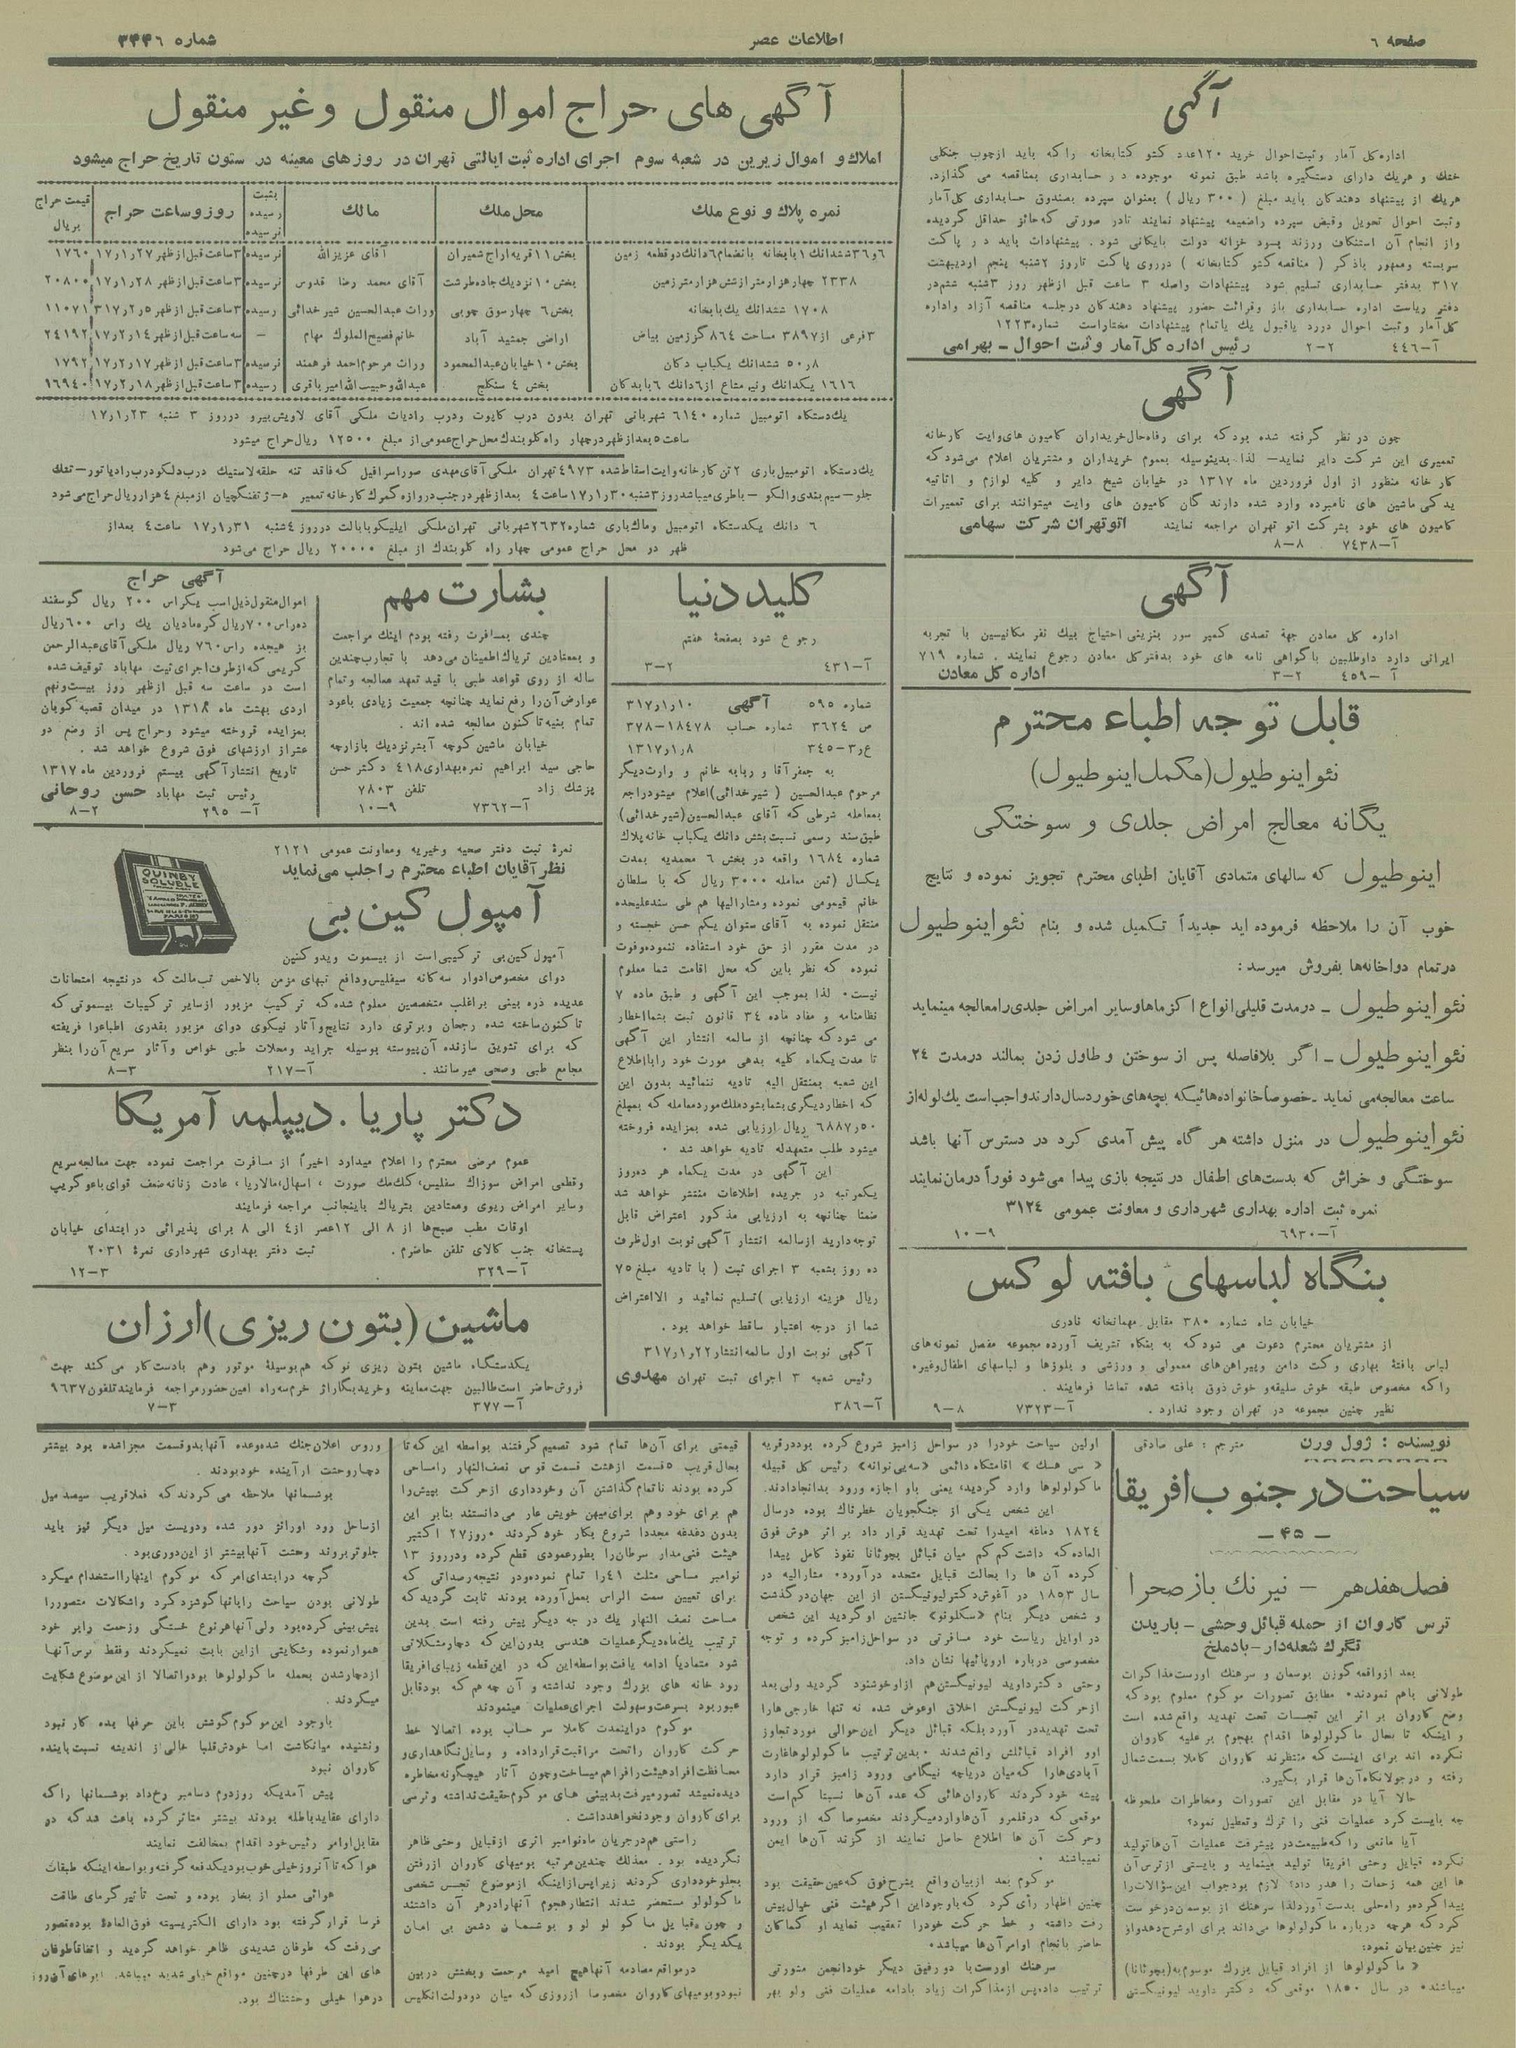 صفحه ۶
اطلاعات عصر
شماره ۳۴۴۶
آگهی
اداره کل آمار و ثبت احوال خرید ۱۲۰ عدد کشو کتابخانه را که باید از چوب جنگلی
خشك و هریك دارای دستگیره باشد طبق نمونه موجوده در حسابداری بمناقصه می گذارد.
هریك از پیشنهاد دهندگان باید مبلغ (۳۰۰ ریال) بعنوان سپرده بصندوق حسابداری کل آمار
و ثبت احوال تحویل و قبض سپرده را ضمیمه پیشنهاد نمایند تا در صورتی که حائز حداقل گردیده
و از انجام آن استنکاف ورزند بسود خزانه دولت بایگانی شود. پیشنهادات باید در پاکت
سربسته و ممهور با ذکر (مناقصه کشو کتابخانه) در روی پاکت تا روز ۲ شنبه پنجم اردیبهشت
۳۱۷ بدفتر حسابداری تسلیم شود پیشنهادات واصله ۳ ساعت قبل از ظهر روز ۳ شنبه ششم در
دفتر ریاست اداره حسابداری باز و قرائت حضور پیشنهاد دهندگان در جلسه مناقصه آزاد و اداره
کل آمار و ثبت احوال در رد یا قبول یك یا تمام پیشنهادات مختار است شماره ۱۲۲۳
رئیس اداره کل آمار و ثبت احوال ـ بهرامی
آ—۴۴۶ ۲—۲
آگهی
چون در نظر گرفته شده بود که برای رفاه حال خریداران کامیون های وایت کارخانه
تعمیری این شرکت دایر نماید— لذا بدینوسیله بعموم خریداران و مشتریان اعلام می شود که
کار خانه منظور از اول فروردین ماه ۱۳۱۷ در خیابان شیخ دایر و کلیه لوازم و اثاثیه
یدکی ماشین های نامبرده وارد شده دارندگان کامیون های وایت میتوانند برای تعمیرات
کامیون های خود بشرکت اتو تهران مراجعه نمایند اتو تهران شرکت سهامی
آ—۷۴۳۸ ۸—۸
آگهی
اداره کل معادن جهة تصدی کمپرسور بنزینی احتیاج بیك نفر مکانیسین با تجربه
ایرانی دارد داوطلبین با گواهی نامه های خود بدفتر کل معادن رجوع نمایند. شماره ۷۱۹
آ—۴۵۹ ۲—۳ اداره کل معادن
قابل توجه اطباء محترم
نئو اینوطیول (مکمل اینوطیول)
یگانه معالج امراض جلدی و سوختکی
اینوطیول که سالهای متمادی آقایان اطبای محترم تجویز نموده و نتایج
خوب آن را ملاحظه فرموده اید جدیداً تکمیل شده و بنام نئو اینوطیول
در تمام دواخانه ها بفروش میرسد:
نئو اینوطیول ـ در مدت قلیلی انواع اکزماها و سایر امراض جلدی را معالجه مینماید
نئو اینوطیول ـ اگر بلافاصله پس از سوختن و طاول زدن بمالند در مدت ۲۴
ساعت معالجه می نماید ـ خصوصاً خانواده هائیکه بچه های خوردسال دارند واجب است یك لوله از
نئو اینوطیول در منزل داشته هر گاه پیش آمدی کرد در دسترس آنها باشد
سوختگی و خراش که بدست های اطفال در نتیجه بازی پیدا می شود فوراً درمان نمایند
نمره ثبت اداره بهداری شهرداری و معاونت عمومی ۳۱۲۴
آ—۶۹۳۰ ۹—۱۰
بنگاه لباسهای بافته لوکس
خیابان شاه شماره ۳۸۰ مقابل مهمانخانه نادری
از مشتریان محترم دعوت می شود که به بنگاه تشریف آورده مجموعه مفصل نمونه های
لباس بافتهٔ بهاری و کت دامن و پیراهن های معمولی و ورزشی و بلوزها و لباسهای اطفال و غیره
را که مخصوص طبقه خوش سلیقه و خوش ذوق بافته شده تماشا فرمایند.
نظیر چنین مجموعه در تهران وجود ندارد. آ—۷۳۲۳ ۸—۹
آگهی های حراج اموال منقول و غیر منقول
املاك و اموال زیرین در شعبه سوم اجرای اداره ثبت ایالتی تهران در روزهای معینه در ستون تاریخ حراج میشود
نمره پلاك و نوع ملك | محل ملك | مالك | بثبت رسیده نرسیده | روز و ساعت حراج | قیمت حراج بریال
۶ و ۳۶ ششدانك ۱ باب خانه بانضمام ۶ دانك دو قطعه زمین | بخش ۱۱ قریه اراج شمیران | آقای عزیزالله | نرسیده | ۳ ساعت قبل از ظهر ۱۷٫۱٫۲۷ | ۱۷۶۰
۲۳۳۸ چهار هزار متر از شش هزار متر زمین | بخش ۱۰ نزدیك جاده طرشت | آقای محمد رضا قدوس | نرسیده | ۳ ساعت قبل از ظهر ۱۷٫۱٫۲۸ | ۲۰۸۰۰
۱۷۰۸ ششدانك یك باب خانه | بخش ۶ چهار سوق چوبی | وراث عبدالحسین شیر خدائی | رسیده | ۳ ساعت قبل از ظهر ۳۱۷٫۲٫۵ | ۱۱۰۷۱
۳ فرعی از ۳۸۹۷ مساحت ۸۶۴ گز زمین بیاض | اراضی جمشید آباد | خانم فصیح الملوك مهام | — | سه ساعت قبل از ظهر ۱۷٫۲٫۱۴ | ۲۴۱۹۲
۵۰٫۸ ششدانك یکباب دکان | بخش ۱۰ خیابان عبدالمحمود | وراث مرحوم احمد فرهمند | نرسیده | ۳ ساعت قبل از ظهر ۱۷٫۲٫۱۷ | ۱۷۹۲
۱۶۱۶ یکدانك و نیم مشاع از ۶ دانك ۶ باب دکان | بخش ۴ سنگلج | عبدالله و حبیب الله امیر باقری | رسیده | ۳ ساعت قبل از ظهر ۱۷٫۲٫۱۸ | ۹۶۹۴۰
یك دستگاه اتومبیل شماره ۶۱۴۰ شهربانی تهران بدون درب کاپوت و درب رادیات ملکی آقای لاویش بیرو در روز ۳ شنبه ۱۷٫۱٫۲۳
ساعت ۵ بعد از ظهر در چهار راه کلوبندك محل حراج عمومی از مبلغ ۱۲۵۰۰ ریال حراج میشود
یك دستگاه اتومبیل باری ۲ تن کارخانه وایت اسقاط شده ۴۹۷۳ تهران ملکی آقای مهدی صور اسرافیل که فاقد تنه حلقه لاستیك درب دلکو درب رادیاتور—تشك
جلو—سیم بندی والکو—باطری میباشد روز ۳ شنبه ۱۷٫۱٫۳۰ ساعت ۴ بعد از ظهر در جنب دروازه گمرك کارخانه تعمیر ه—ژ تفنگچیان از مبلغ ۴ هزار ریال حراج می شود
۶ دانك یکدستگاه اتومبیل و ماك باری شماره ۲۶۳۲ شهربانی تهران ملکی ایلیکو بابالت در روز ۴ شنبه ۱۷٫۱٫۳۱ ساعت ۴ بعداز
ظهر در محل حراج عمومی چهار راه کلوبندك از مبلغ ۲۰۰۰۰ ریال حراج می شود
کلید دنیا
رجوع شود بصفحهٔ هفتم
آ—۴۳۱ ۲—۳
شماره ۵۹۵ آگهی ۳۱۷٫۱٫۱۰
ص ۳۶۲۴ شماره حساب ۱۸۴۷۸—۳۷۸
ع ر ۳—۳۴۵ ۱۳۱۷٫۱٫۸
به جعفر آقا و ربابه خانم و وارث دیگر
مرحوم عبدالحسین (شیر خدائی) اعلام میشود راجع
بمعامله شرطی که آقای عبدالحسین (شیر خدائی)
طبق سند رسمی نسبت بشش دانك یکباب خانه پلاك
شماره ۱۶۸۴ واقعه در بخش ۶ محمدیه بمدت
یکسال (ثمن معامله ۳۰۰۰ ریال که با سلطان
خانم قیمومی نموده و مشارالیها هم طی سند علیحده
منتقل نموده به آقای ستوان یکم حسن خجسته و
در مدت مقرر از حق خود استفاده ننموده و فوت
نموده که نظر باین که محل اقامت شما معلوم
نیست. لذا بموجب این آگهی و طبق ماده ۷
نظامنامه و مفاد ماده ۳۴ قانون ثبت بشما اخطار
می شود که چنانچه از سالمه انتشار این آگهی
تا مدت یکماه کلیه بدهی مورث خود را با اطلاع
این شعبه بمنتقل الیه تادیه ننمائید بدون این
که اخطار دیگری بشما بشود ملك مورد معامله که بمبلغ
۶۸۸۷٫۵۰ ریال ارزیابی شده بمزایده فروخته
میشود طلب متعهدله تادیه خواهد شد.
این آگهی در مدت یکماه هر ده روز
یکمرتبه در جریده اطلاعات منتشر خواهد شد
ضمنا چنانچه به ارزیابی مذکور اعتراض قابل
توجه دارید از سالمه انتشار آگهی نوبت اول ظرف
ده روز بشعبه ۳ اجرای ثبت (با تادیه مبلغ ۷۵
ریال هزینه ارزیابی) تسلیم نمائید و الا اعتراض
شما از درجه اعتبار ساقط خواهد بود.
آگهی نوبت اول سالمه انتشار ۳۱۷٫۱٫۲۲
رئیس شعبه ۳ اجرای ثبت تهران مهدوی
آ—۳۸۶
بشارت مهم
چندی بمسافرت رفته بودم اینك مراجعت
و بمعتادین تریاك اطمینان می دهد با تجارب چندین
ساله از روی قواعد طبی با قید تعهد معالجه و تمام
عوارض آن را رفع نماید چنانچه جمعیت زیادی با عود
تمام بنیه تاکنون معالجه شده اند.
خیابان ماشین کوچه آبشر نزدیك بازارچه
حاجی سید ابراهیم نمره بهداری ۴۱۸ دکتر حسن
پزشك زاد تلفن ۷۸۰۳
آ—۷۳۶۲ ۹—۱۰
آگهی حراج
اموال منقول ذیل اسب یکراس ۲۰۰ ریال گوسفند
ده راس ۷۰۰ ریال کره مادیان یك راس ۶۰۰ ریال
بز هیجده راس ۷۶۰ ریال ملکی آقای عبدالرحمن
کریمی که از طرف اجرای ثبت مهاباد توقیف شده
است در ساعت سه قبل از ظهر روز بیست و نهم
اردی بهشت ماه ۱۳۱۸ در میدان قصبه کوبان
بمزایده فروخته میشود و حراج پس از وضع دو
عشر از ارزشهای فوق شروع خواهد شد.
تاریخ انتشار آگهی بیستم فروردین ماه ۱۳۱۷
رئیس ثبت مهاباد حسن روحانی
آ—۲۹۵ ۲—۸
نمرهٔ ثبت دفتر صحیه و خیریه و معاونت عمومی ۲۱۲۱
نظر آقایان اطباء محترم را جلب می نماید
آمپول کین بی
QUINBY
SOLUBLE
آمپول کین بی ترکیبی است از بیسموت و ید و کنین
دوای مخصوص ادوار سه گانه سیفلیس و دافع تبهای مزمن بالاخص تب مالت که در نتیجه امتحانات
عدیده ذره بینی بر اغلب متخصصین معلوم شده که ترکیب مزبور از سایر ترکیبات بیسموتی که
تا کنون ساخته شده رجحان و برتری دارد نتایج و آثار نیکوی دوای مزبور بقدری اطباء را فریفته
که برای تشویق سازنده آن پیوسته بوسیله جراید و مجلات طبی خواص و آثار سریع آن را بنظر
مجامع طبی و صحی میرسانند. آ—۲۱۷ ۳—۸
دکتر پاریا. دیپلمه آمریکا
عموم مرضی محترم را اعلام میدارد اخیراً از مسافرت مراجعت نموده جهت معالجه سریع
و قطعی امراض سوزاك سفلیس، کك مك صورت، اسهال، مالاریا، عادت زنانه ضعف قوای باه و گریپ
و سایر امراض ریوی و معتادین بتریاك باینجانب مراجعه فرمایند
اوقات مطب صبح ها از ۸ الی ۱۲ عصر از ۴ الی ۸ برای پذیرائی در ابتدای خیابان
پستخانه جنب کالای تلفن حاضرم. ثبت دفتر بهداری شهرداری نمرهٔ ۲۰۳۱
آ—۳۲۹ ۳—۱۲
ماشین (بتون ریزی) ارزان
یکدستگاه ماشین بتون ریزی نو که هم بوسیلهٔ موتور و هم با دست کار می کند جهت
فروش حاضر است طالبین جهت معاینه و خرید بگاراژ خرم سه راه امین حضور مراجعه فرمایند تلفون ۹۶۳۷
آ—۳۷۷ ۳—۷
نویسنده: ژول ورن مترجم: علی صادقی
سیاحت در جنوب افریقا
— ۴۵ —
فصل هفدهم — نیرنك باز صحرا
ترس کاروان از حمله قبائل وحشی ـ باریدن
تگرك شعله دار ـ باد ملخ
بعد از واقعه گوزن بوسمان و سرهنك اورست مذاکرات
طولانی باهم نمودند. مطابق تصورات موکوم معلوم بود که
وضع کاروان بر اثر این تجسسات تحت تهدید واقع شده است
و اینکه تا بحال ماکولولوها اقدام بهجوم بر علیه کاروان
نکرده اند برای اینست که منتظرند کاروان کاملا بسمت شمال
رفته و در جولانگاه آن ها قرار بگیرد.
حالا آیا در مقابل این تصورات و مخاطرات ملحوظه
چه بایست کرد عملیات فنی را ترك و تعطیل نمود؟
آیا مانعی را که طبیعت در پیشرفت عملیات آن ها تولید
نکرده قبایل وحشی افریقا تولید مینماید و بایستی از ترس آن
ها این همه زحمات را هدر داد؟ لازم بود جواب این سؤالات را
پیدا کرده و راه حلی بدست آورد لذا سرهنك از بوسمان درخواست
کرد که هرچه درباره ماکولولوها می داند برای او شرح دهد و او
نیز چنین بیان نمود:
« ماکولولوها از افراد قبایل بزرك موسوم به (بچوئانا)
میباشند. در سال ۱۸۵۰ موقعی که دکتر داوید لیونیگستن
اولین سیاحت خود را در سواحل زامبز شروع کرده بود در قریه
« سی هسك » اقامتگاه دائمی «سه بی توانه» رئیس کل قبیله
ماکولولوها وارد گردید، یعنی باو اجازه ورود بدانجا دادند.
این شخص یکی از جنگجویان خطرناك بوده در سال
۱۸۲۴ دماغه امید را تحت تهدید قرار داد بر اثر هوش فوق
العاده که داشت کم کم میان قبائل بچوئانا نفوذ کامل پیدا
کرده آن ها را بحالت قبایل متحده در آورد. مشارالیه در
سال ۱۸۵۳ در آغوش دکتر لیونیگستن از این جهان در گذشت
و شخص دیگر بنام «سکلوتو» جانشین او گردید این شخص
در اوایل ریاست خود مسافرتی در سواحل زامبز کرده و توجه
مخصوصی درباره اروپائیها نشان داد.
وحتی دکتر داوید لیونیگستن هم از او خوشنود گردید ولی بعد
از حرکت لیونیگستن اخلاق او عوض شده نه تنها خارجی ها را
تحت تهدید در آورد بلکه قبائل دیگر این حوالی مورد تجاوز
او و افراد قبائلش واقع شدند. بدین ترتیب ماکولولوها غارت
آبادی ها را که میان دریاچه نیگامی و رود زامبز قرار دارد
پیشه خود کردند کاروان هائی که عده آن ها نسبتا کم است
موقعی که در قلمرو آن ها وارد میگردند مخصوصا که از ورود
و حرکت آن ها اطلاع حاصل نمایند از گزند آن ها ایمن
نمیباشند.
موکوم بعد از بیان واقع بشرح فوق که عین حقیقت بود
چنین اظهار رأی کرد که باوجود این اگر هیئت فنی خیال پیش
رفت داشته و خط حرکت خود را تعقیب نماید او کماکان
حاضر بانجام اوامر آن ها میباشد.
سرهنك اورست با دو رفیق دیگر خود انجمن مشورتی
ترتیب داده پس از مذاکرات زیاد بادامه عملیات فنی ولو بهر
قیمتی برای آن ها تمام شود تصمیم گرفتند بواسطه این که تا
بحال قریب ۵ قسمت از هشت قسمت قوس نصف النهار را مساحی
کرده بودند ناتمام گذاشتن آن و خودداری از حرکت بپیش را
هم برای خود و هم برای میهن خویش عار می دانستند بنابر این
بدون دغدغه مجددا شروع بکار خود کردند. روز ۲۷ اکتبر
هیئت فنی مدار سرطان را بطور عمودی قطع کرده و در روز ۱۳
نوامبر مساحی مثلث ۴۱ را تمام نموده و در نتیجه رصداتی که
برای تعیین سمت الراس بعمل آورده بودند ثابت گردید که
مساحت نصف النهار یك درجه دیگر پیش رفته است بدین
ترتیب یك ماه دیگر عملیات هندسی بدون این که دچار مشکلاتی
شود متمادیا ادامه یافت بواسطه این که در این قطعه زیبای افریقا
رود خانه های بزرك وجود نداشته و آن چه هم که بود قابل
عبور بود بسرعت و سهولت اجرای عملیات مینمودند
موکوم در اینمدت کاملا سر حساب بوده اتصالا خط
حرکت کاروان را تحت مراقبت قرار داده و وسایل نگاهداری و
محافظت افراد هیئت را فراهم میساخت و چون آثار هیچگونه مخاطره
دیده نمیشد تصور میرفت بدبینی های موکوم حقیقت نداشته و ترسی
برای کاروان وجود نخواهد داشت.
راستی هم در جریان ماه نوامبر اثری از قبایل وحشی ظاهر
نگردیده بود. معذلك چندین مرتبه بومیهای کاروان از رفتن
بجلو خودداری کردند زیرا پس از اینکه از موضوع تجسس شخصی
ماکولولو مستحضر شدند انتظار هجوم آنها را در هر آن داشتند
و چون قبایل ماکولولو و بوشمان دشمن بی امان
یکدیگر بودند.
در مواقع مصادمه آنها هیچ امید مرحمت و بخشش در بین
نبود و بومیهای کاروان مخصوصا از روزی که میان دو دولت انگلیس
و روس اعلان جنك شده و عده آنها بدو قسمت مجزا شده بود بیشتر
دچار وحشت از آینده خود بودند.
بوشمانها ملاحظه می کردند که فعلا قریب سیصد میل
از ساحل رود اورانژ دور شده و دویست میل دیگر نیز باید
جلوتر بروند وحشت آنها بیشتر از این دوری بود.
گرچه در ابتدای امر که موکوم اینها را استخدام میکرد
طولانی بودن سیاحت را بانها گوشزد کرد و اشکالات متصور را
پیش بینی کرده بود ولی آنها هر نوع خستگی و زحمت را بر خود
هموار نموده و شکایتی از این بابت نمیکردند و فقط ترس آنها
از دچار شدن بحمله ماکولولوها بود و اتصالا از این موضوع شکایت
میکردند.
باوجود این موکوم گوشش باین حرفها بده کار نبود
و نشنیده میانگاشت اما خودش قلبا خالی از اندیشه نسبت باینده
کاروان نبود
پیش آمدیکه روز دوم دسامبر رخ داد بوشمانها را که
دارای عقاید باطله بودند بیشتر متاثر کرده باعث شد که در
مقابل اوامر رئیس خود اقدام بمخالفت نمایند
هوا که تا آنروز خیلی خوب بود یکدفعه گرفته و بواسطه اینکه طبقات
هوائی مملو از بخار بوده و تحت تأثیر گرمای طاقت
فرسا قرار گرفته بود دارای الکتریسیته فوق العادهٔ بوده تصور
می رفت که طوفان شدیدی ظاهر خواهد گردید و اتفاقاً طوفان
های این طرفها در چنین مواقع خیلی شدید میباشد. ابرهای آنروز
در هوا خیلی وحشتناك بود.